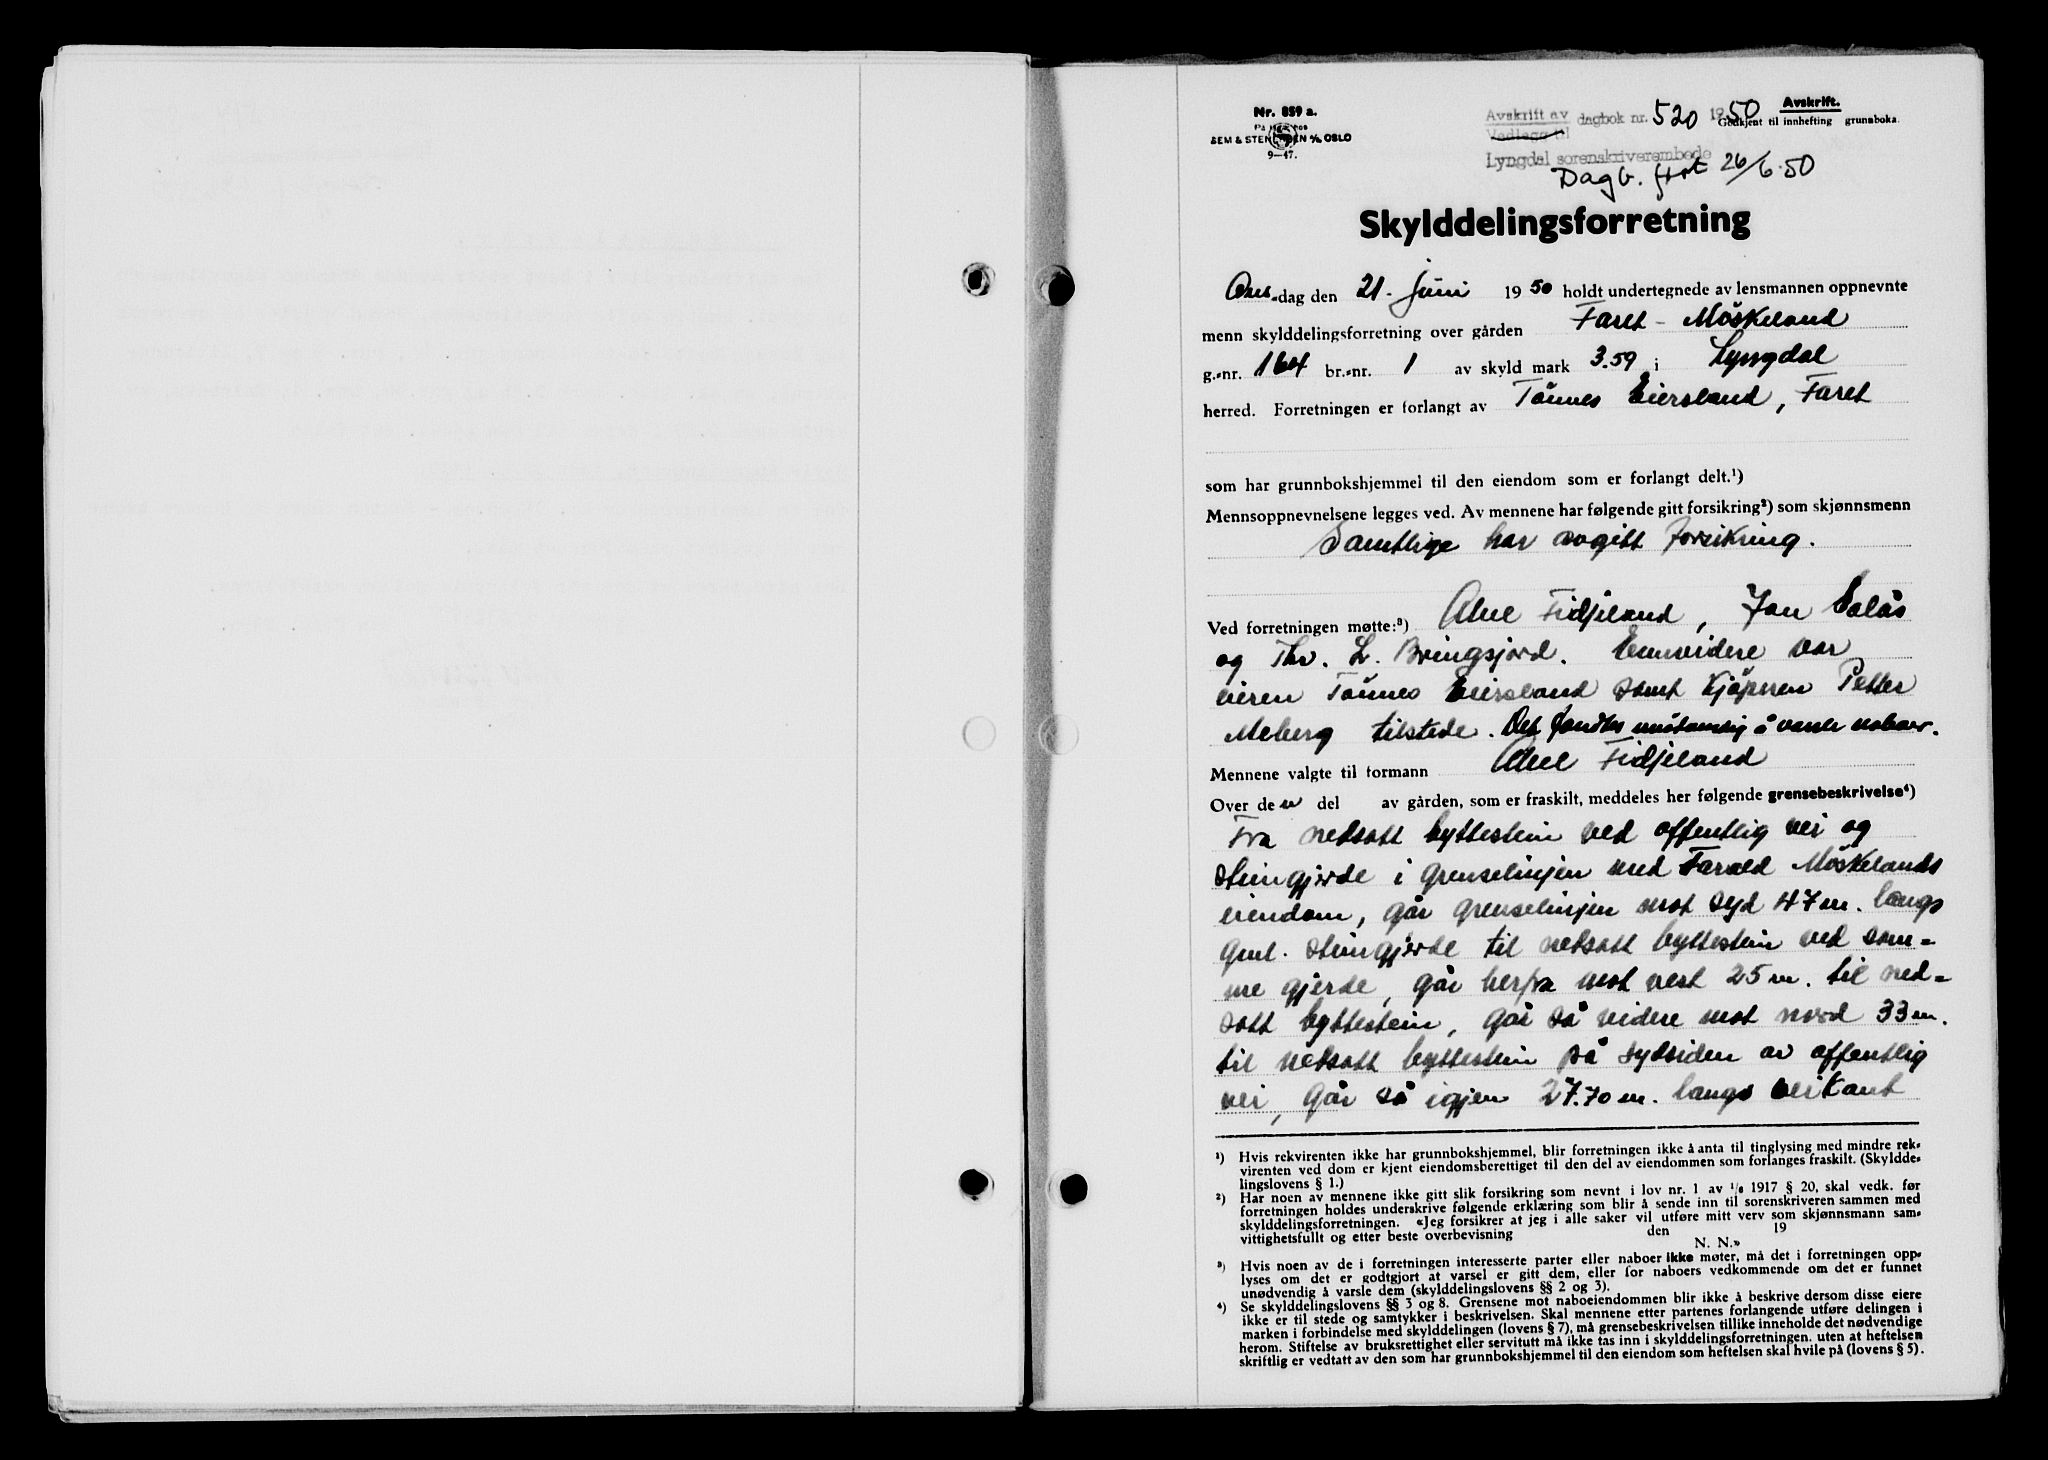 Nr. 859 a.
SEM & STENERSEN A/S OSLO
9—47.
Avskrift av
Vedlegg til
dagbok nr. 520 1950
Lyngdal sorenskriverembede
Avskrift.
Godkjent til innhefting i grunnboka.
Dagb. ført 26/6.50
Skylddelingsforretning
Ons-dag den 21. juni 1950 holdt undertegnede av lensmannen oppnevnte
menn skylddelingsforretning over gården Faret - Möskeland
g.-nr. 164 br.-nr. 1 av skyld mark 3.59 i Lyngdal
herred. Forretningen er forlangt av Tönnes Eiersland, Faret
som har grunnbokshjemmel til den eiendom som er forlangt delt.¹)
Mennsoppnevnelsene legges ved. Av mennene har følgende gitt forsikring²) som skjønnsmenn
Samtlige har avgitt forsikring.
Ved forretningen møtte:³) Abel Fidjeland, Jan Salås
og Thv. L. Bringsjord. Ennvidere var
eieren Tönnes Eiersland samt kjöperen Petter
Meberg tilstede. Det fandtes unödvendig å varsle naboer.
Mennene valgte til formann Abel Fidjeland
Over den del av gården, som er fraskilt, meddeles her følgende grensebeskrivelse⁴)
Fra nedsatt byttestein ved offentlig vei og
steingjerde i grenselinjen med Farald Möskelands
eiendom, går grenselinjen mot syd 47 m. langs
gml. steingjerde til nedsatt byttestein ved sam-
me gjerde, går herfra mot vest 25 m. til ned-
satt byttestein, går så videre mot nord 33 m.
til nedsatt byttestein på sydsiden av offentlig
vei, går så igjen 27.70 m. langs veikant
¹) Hvis rekvirenten ikke har grunnbokshjemmel, blir forretningen ikke å anta til tinglysing med mindre rek-
virenten ved dom er kjent eiendomsberettiget til den del av eiendommen som forlanges fraskilt. (Skyldde-
lingslovens § 1.)
²) Har noen av mennene ikke gitt slik forsikring som nevnt i lov nr. 1 av 1/6 1917 § 20, skal vedk. før
forretningen holdes underskrive følgende erklæring som blir å sende inn til sorenskriveren sammen med
skylddelingsforretningen. «Jeg forsikrer at jeg i alle saker vil utføre mitt verv som skjønnsmann sam-
vittighetsfullt og etter beste overbevisning den 19
N. N.»
³) Hvis noen av de i forretningen interesserte parter eller naboer ikke møter, må det i forretningen opp-
lyses om det er godtgjort at varsel er gitt dem, eller for naboers vedkommende om det er funnet
unødvendig å varsle dem (skylddelingslovens §§ 2 og 3).
⁴) Se skylddelingslovens §§ 3 og 8. Grensene mot naboeiendommen blir ikke å beskrive dersom disse eiere
ikke er til stede og samtykker i beskrivelsen. Skal mennene etter partenes forlangende utføre delingen i
marken i forbindelse med skylddelingen (lovens § 7), må grensebeskrivelsen tillike inneholde det nødvendige
herom. Stiftelse av bruksrettighet eller servitutt må ikke tas inn i skylddelingsforretningen. uten at heftelsen
skriftlig er vedtatt av den som har grunnbokshjemmel til den eiendom som heftelsen skal hvile på (lovens § 5).